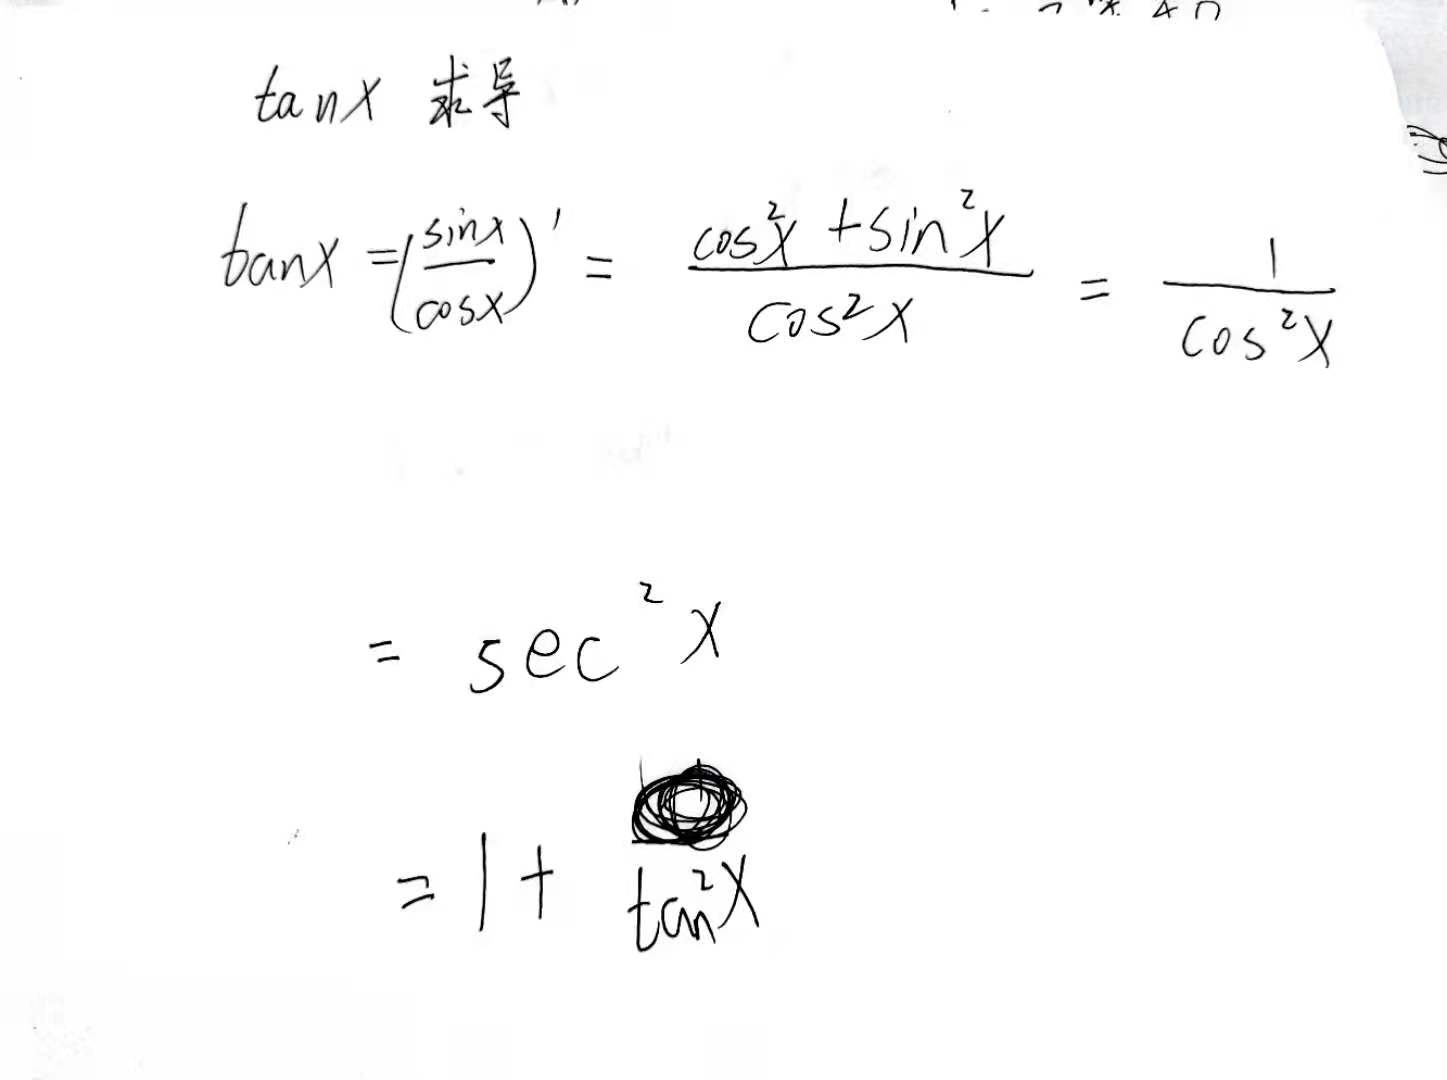 tanx 求导
tanx = (sinx/cosx)' = (cos²x + sin²x)/cos²x = 1/cos²x
= sec²x
= 1 + tan²x